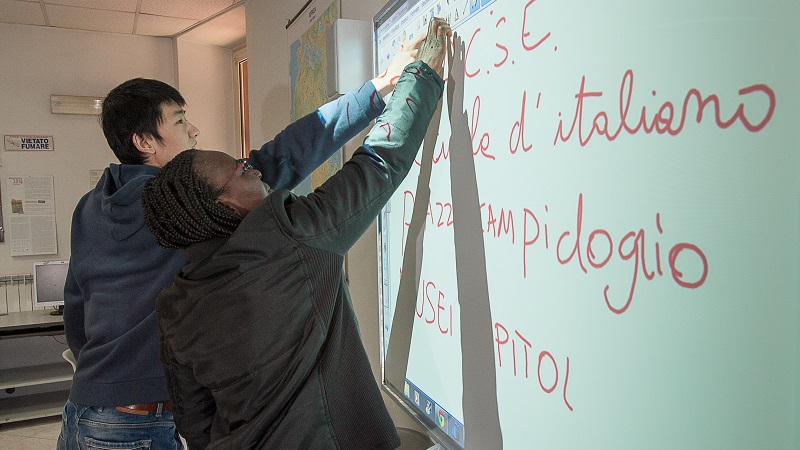 VIETATO
FUMARE
C.S.E.
d'italiano
PIAZZ CAMPidoglio
USEI PITOL